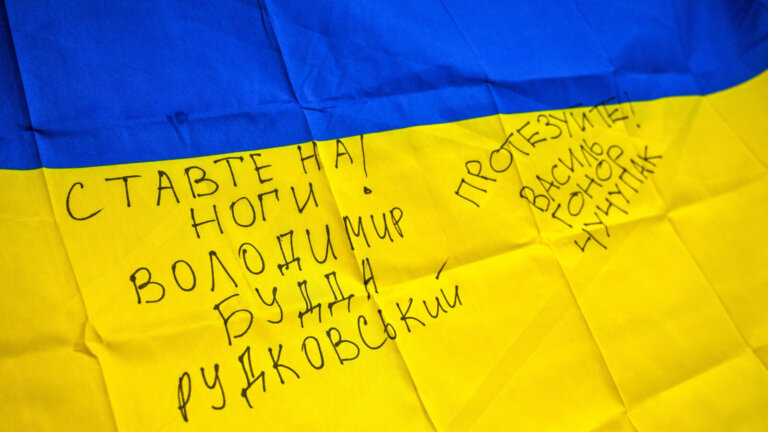 СТАВТЕ НА!
НОГИ!
ВОЛОДИМИР
БУДДА
РУДКОВСЬКИЙ
ПРОТЕЗУЙТЕ!
ВАСИЛЬ
ГОНОР
ЧУЧУПАК